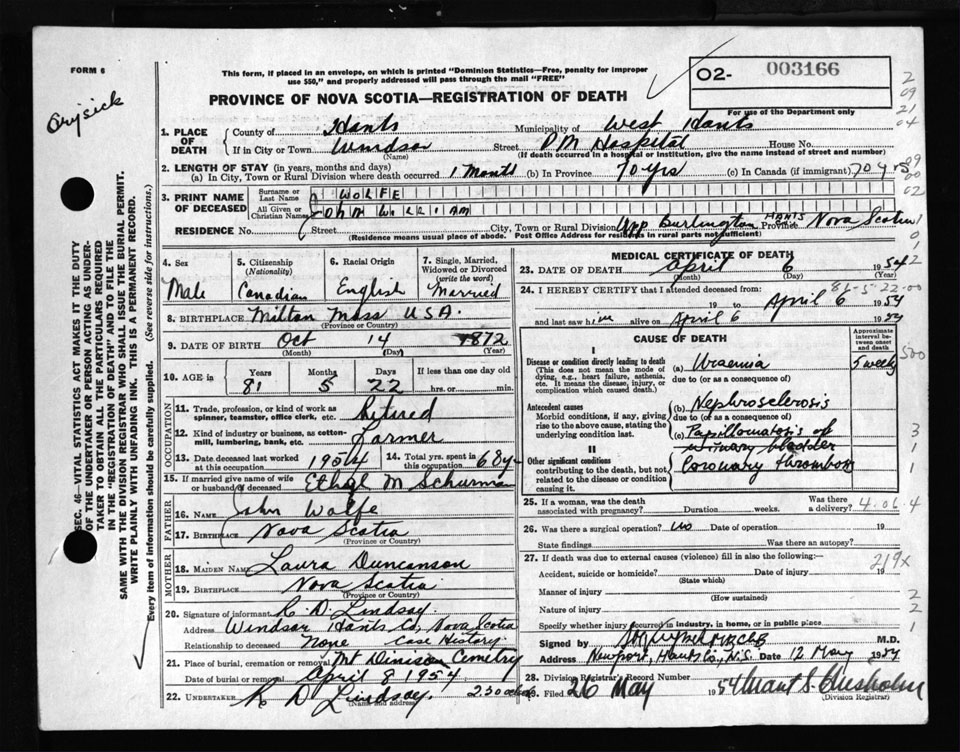 FORM 6
This form, if placed in an envelope, on which is printed "Dominion Statistics—Free, penalty for improper
use $50," and properly addressed will pass through the mail "FREE"
O2- 003166
For use of the Department only
PROVINCE OF NOVA SCOTIA—REGISTRATION OF DEATH
1. PLACE OF DEATH
County of Hants Municipality of West Hants
If in City or Town Windsor Street P M Hospital House No.
(Name) (If death occurred in a hospital or institution, give the name instead of street and number)
2. LENGTH OF STAY (in years, months and days)
(a) In City, Town or Rural Division where death occurred 1 Month (b) In Province 70 yrs (c) In Canada (if immigrant) 70 yrs
3. PRINT NAME OF DECEASED
Surname or Last Name WOLFE
All Given or Christian Names JOHN WILLIAM
RESIDENCE No. Street City, Town or Rural Division Upp Burlington HANTS Province Nova Scotia
(Residence means usual place of abode. Post Office Address for residents in rural parts not sufficient)
4. Sex Male
5. Citizenship (Nationality) Canadian
6. Racial Origin English
7. Single, Married, Widowed or Divorced (write the word) Married
8. BIRTHPLACE Milton Mass USA.
(Province or Country)
9. DATE OF BIRTH Oct 14 1872
(Month) (Day) (Year)
10. AGE in Years 81 Months 5 Days 22 If less than one day hrs. or min.
OCCUPATION
11. Trade, profession, or kind of work as spinner, teamster, office clerk, etc. Retired
12. Kind of industry or business, as cotton-mill, lumbering, bank, etc. Farmer
13. Date deceased last worked at this occupation 1954
14. Total yrs. spent in this occupation 68 y
15. If married give name of wife or husband of deceased Ethel M Schurman
FATHER
16. NAME John Wolfe
17. BIRTHPLACE Nova Scotia
(Province or Country)
MOTHER
18. MAIDEN NAME Laura Duncanson
19. BIRTHPLACE Nova Scotia
(Province or Country)
20. Signature of informant K. D. Lindsay.
Address Windsor Hants Co, Nova Scotia
Relationship to deceased None Case History.
21. Place of burial, cremation or removal Mt Dinison Cemetry
Date of burial or removal April 8 1954
22. UNDERTAKER K D Lindsay. 2.30 oclock
(Name and address)
MEDICAL CERTIFICATE OF DEATH
23. DATE OF DEATH April 6 1954
(Month) (Day) (Year)
81-5-22-00
24. I HEREBY CERTIFY that I attended deceased from:
19 to April 6 1954
and last saw him alive on April 6 1954
CAUSE OF DEATH
Approximate interval between onset and death
I
Disease or condition directly leading to death
(This does not mean the mode of dying, e.g., heart failure, asthenia, etc. It means the disease, injury, or complication which caused death.)
(a) Uraemia 5 weeks
due to (or as a consequence of)
Antecedent causes
Morbid conditions, if any, giving rise to the above cause, stating the underlying condition last.
(b) Nephrosclerosis
due to (or as a consequence of)
(c) Papillomatosis of
urinary bladder
II
Other significant conditions
contributing to the death, but not related to the disease or condition causing it.
Coronary thrombosis
25. If a woman, was the death associated with pregnancy? Duration weeks. Was there a delivery? 4.06.4
26. Was there a surgical operation? No Date of operation 19
State findings Was there an autopsy?
27. If death was due to external causes (violence) fill in also the following:—
Accident, suicide or homicide? Date of injury 19
(State which)
219x
Manner of injury
(How sustained)
Nature of injury
Specify whether injury occurred in industry, in home, or in public place
Signed by M.D.
Address Newport, Hants Co, N.S. Date 12 May 1954
28. Division Registrar's Record Number
29. Filed 26 May 1954 Chisholm
(Division Registrar)
SEC. 46—VITAL STATISTICS ACT MAKES IT THE DUTY
OF THE UNDERTAKER OR PERSON ACTING AS UNDER-
TAKER TO OBTAIN ALL THE PARTICULARS REQUIRED
IN THE "REGISTRATION OF DEATH" AND TO FILE THE
SAME WITH THE DIVISION REGISTRAR WHO SHALL ISSUE THE BURIAL PERMIT.
WRITE PLAINLY WITH UNFADING INK. THIS IS A PERMANENT RECORD.
Every item of information should be carefully supplied. (See reverse side for instructions.)